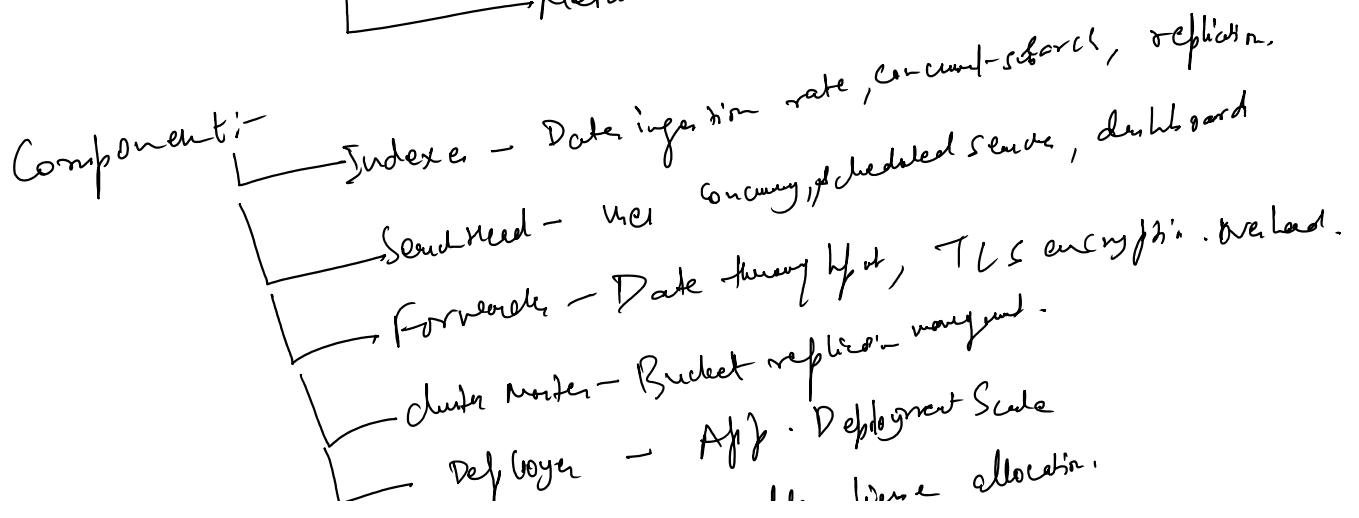 Component :-
Indexer - Data ingestion rate, concurrent-search, replication.
Search Head - user concurrency, scheduled searches, dashboard
Forwarder - Data throughput, TLS encryption overhead.
Cluster Master - Bucket replication management.
Deployer - App. Deployment Scale
license allocation.